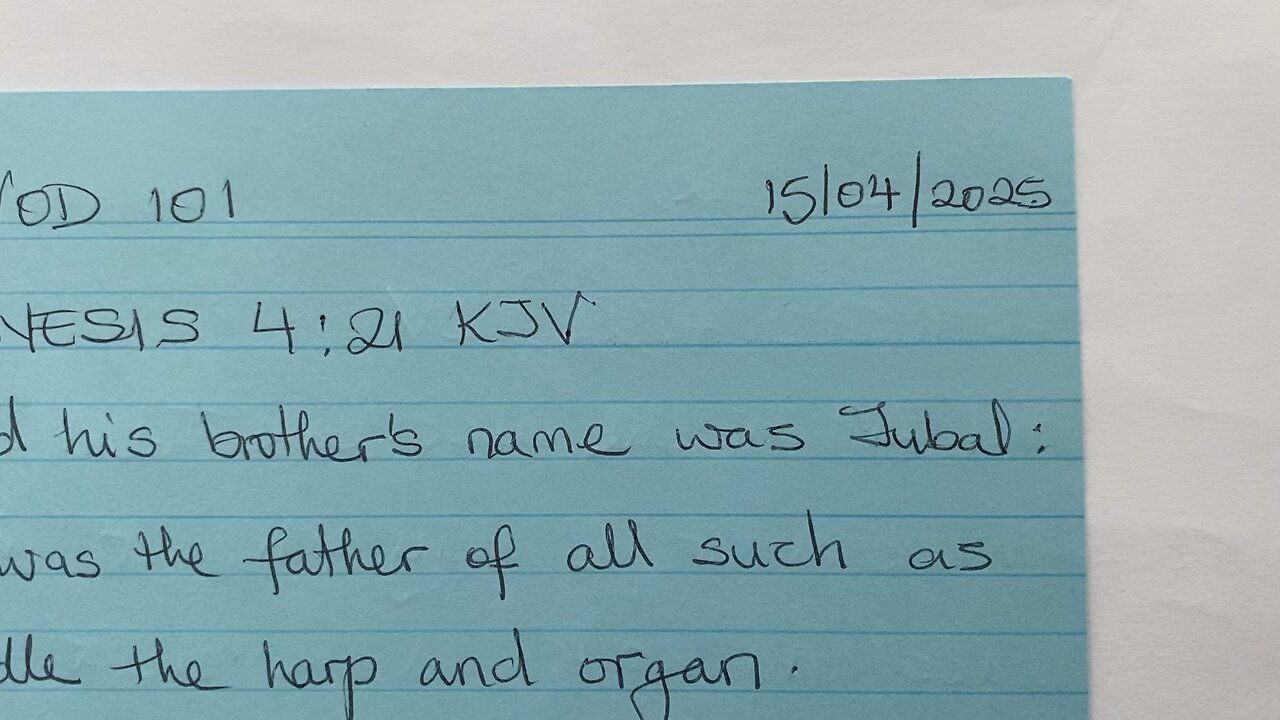 VOD 101 15/04/2025
NESIS 4:21 KJV
d his brother's name was Jubal:
was the father of all such as
dle the harp and organ.